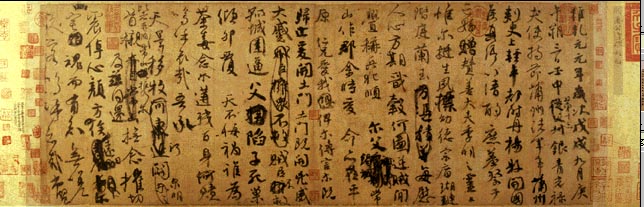 維乾元元年歲次戊戌九月庚
午朔三日壬申第十三叔銀青光祿
夫使持節蒲州諸軍事蒲州
刺史上輕車都尉丹楊縣開國
侯真卿以清酌庶羞祭于
亡姪贈贊善大夫季明之靈曰
惟爾挺生夙標幼德宗廟瑚璉
階庭蘭玉每慰
人心方期戩穀何圖逆賊閒
釁稱兵犯順爾父竭誠常
山作郡余時受命亦在平
原仁兄愛我俾爾傳言爾既
歸止爰開土門土門既開凶威
大蹙賊臣不救
孤城圍逼父陷子死巢
傾卵覆天不悔禍誰為
荼毒念爾遘殘百身何贖
嗚乎哀哉吾承
天澤移牧河關泉明
爾
首櫬及茲同還撫念摧切
震悼心顏方俟遠日
魂而有知無嗟
嗚呼哀哉尚饗